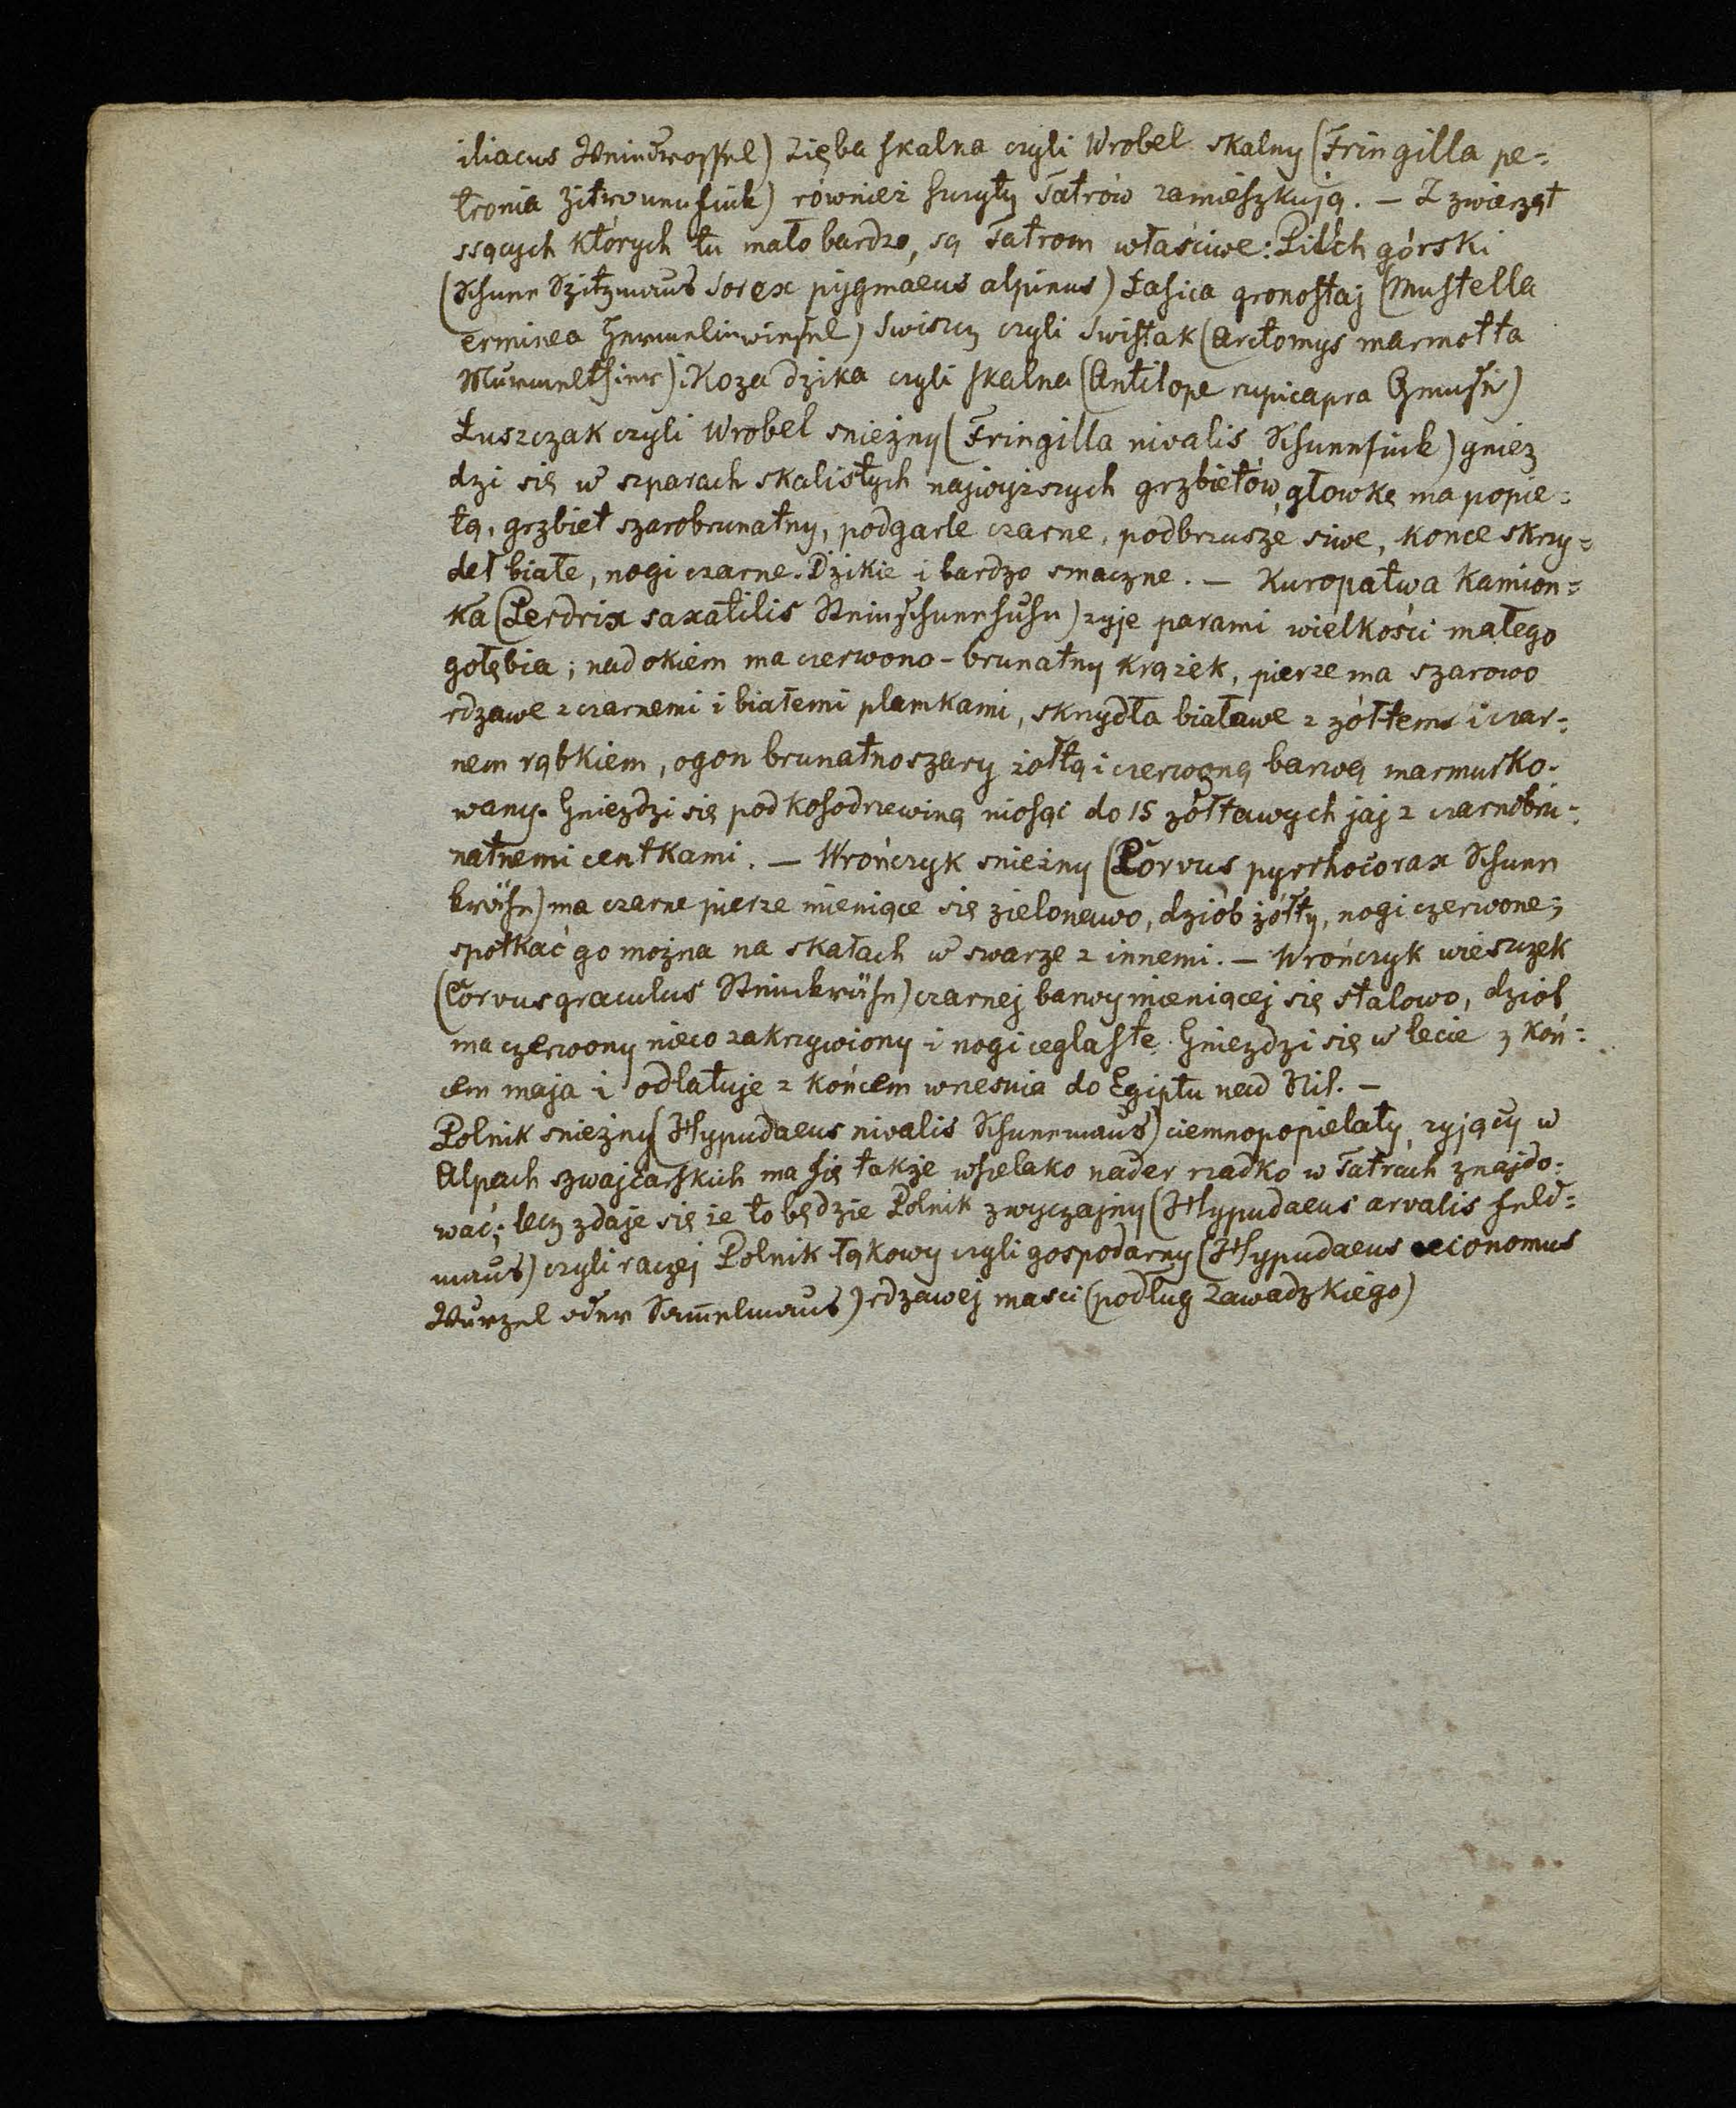 iliacus Weindrossel) Zięba skalna czyli Wrobel skalny (Fringilla pe=
tronia Zitronenfink) również szczyty Tatrów zamieszkują. — Z zwierząt
ssących których tu mało bardzo, są Tatrom właściwe: Pilch górski
(Schnee Spitzmaus Sorex pygmaeus alpinus) Łasica gronostaj (Mustella
erminea Hermelinwiesel) Swiszcz czyli Swistak (Arctomys marmotta
Murmelthier) i Koza dzika czyli skalna (Antilope rupicapra Gemse)
Łuszczak czyli Wrobel snieżny (Fringilla nivalis Schneefink) gniez
dzi się w szparach skalistych najwyższych grzbietów, głowkę ma popie=
łą, grzbiet szarobrunatny, podgarle czarne, podbrzusze siwe, konce skrzy=
deł białe, nogi czarne. Dzikie i bardzo smaczne. — Kuropatwa Kamion=
ka (Perdrix saxatilis Steinschneehuhn) zyje parami wielkości małego
gołębia; nad okiem ma czerwono-brunatny krążek, pierze ma szarowo
rdzawe z czarnemi i białemi plamkami, skrzydła białawe z żółtem i czar=
nem rąbkiem, ogon brunatnoszary żołtą i czerwoną barwą marmurko-
wany. Gniezdzi się pod kosodrzewiną niosąc do 15 żółtawych jaj z czarnobru=
natnemi centkami. — Wrończyk snieżny (Corvus pyrrhocorax Schnee
krähe) ma czarne pierze mieniące się zielonawo, dziób żółty, nogi czerwone;
spotkać go można na skałach w swarze z innemi. — Wrończyk wieszczek
(Corvus graculus Steinkrähe) czarnej barwy mieniącej się stalowo, dziob
ma czerwony nieco zakrzywiony i nogi ceglaste. Gniezdzi się w lecie z koń=
cem maja i odlatuje z końcem wrzesnia do Egiptu nad Nil. —
Polnik snieżny (Hypudaeus nivalis Schneemaus) ciemnopopielaty, zyjący w
Alpach szwajcarskich ma się także wszelako nader rzadko w Tatrach znajdo=
wać; lecz zdaje się że to będzie Polnik zwyczajny (Hypudaeus arvalis Feld=
maus) czyli raczej Polnik łąkowy czyli gospodarny (Hypudaeus oeconomus
Wurzel oder Sam̅elmaus) rdzawej masci (podług Zawadzkiego)